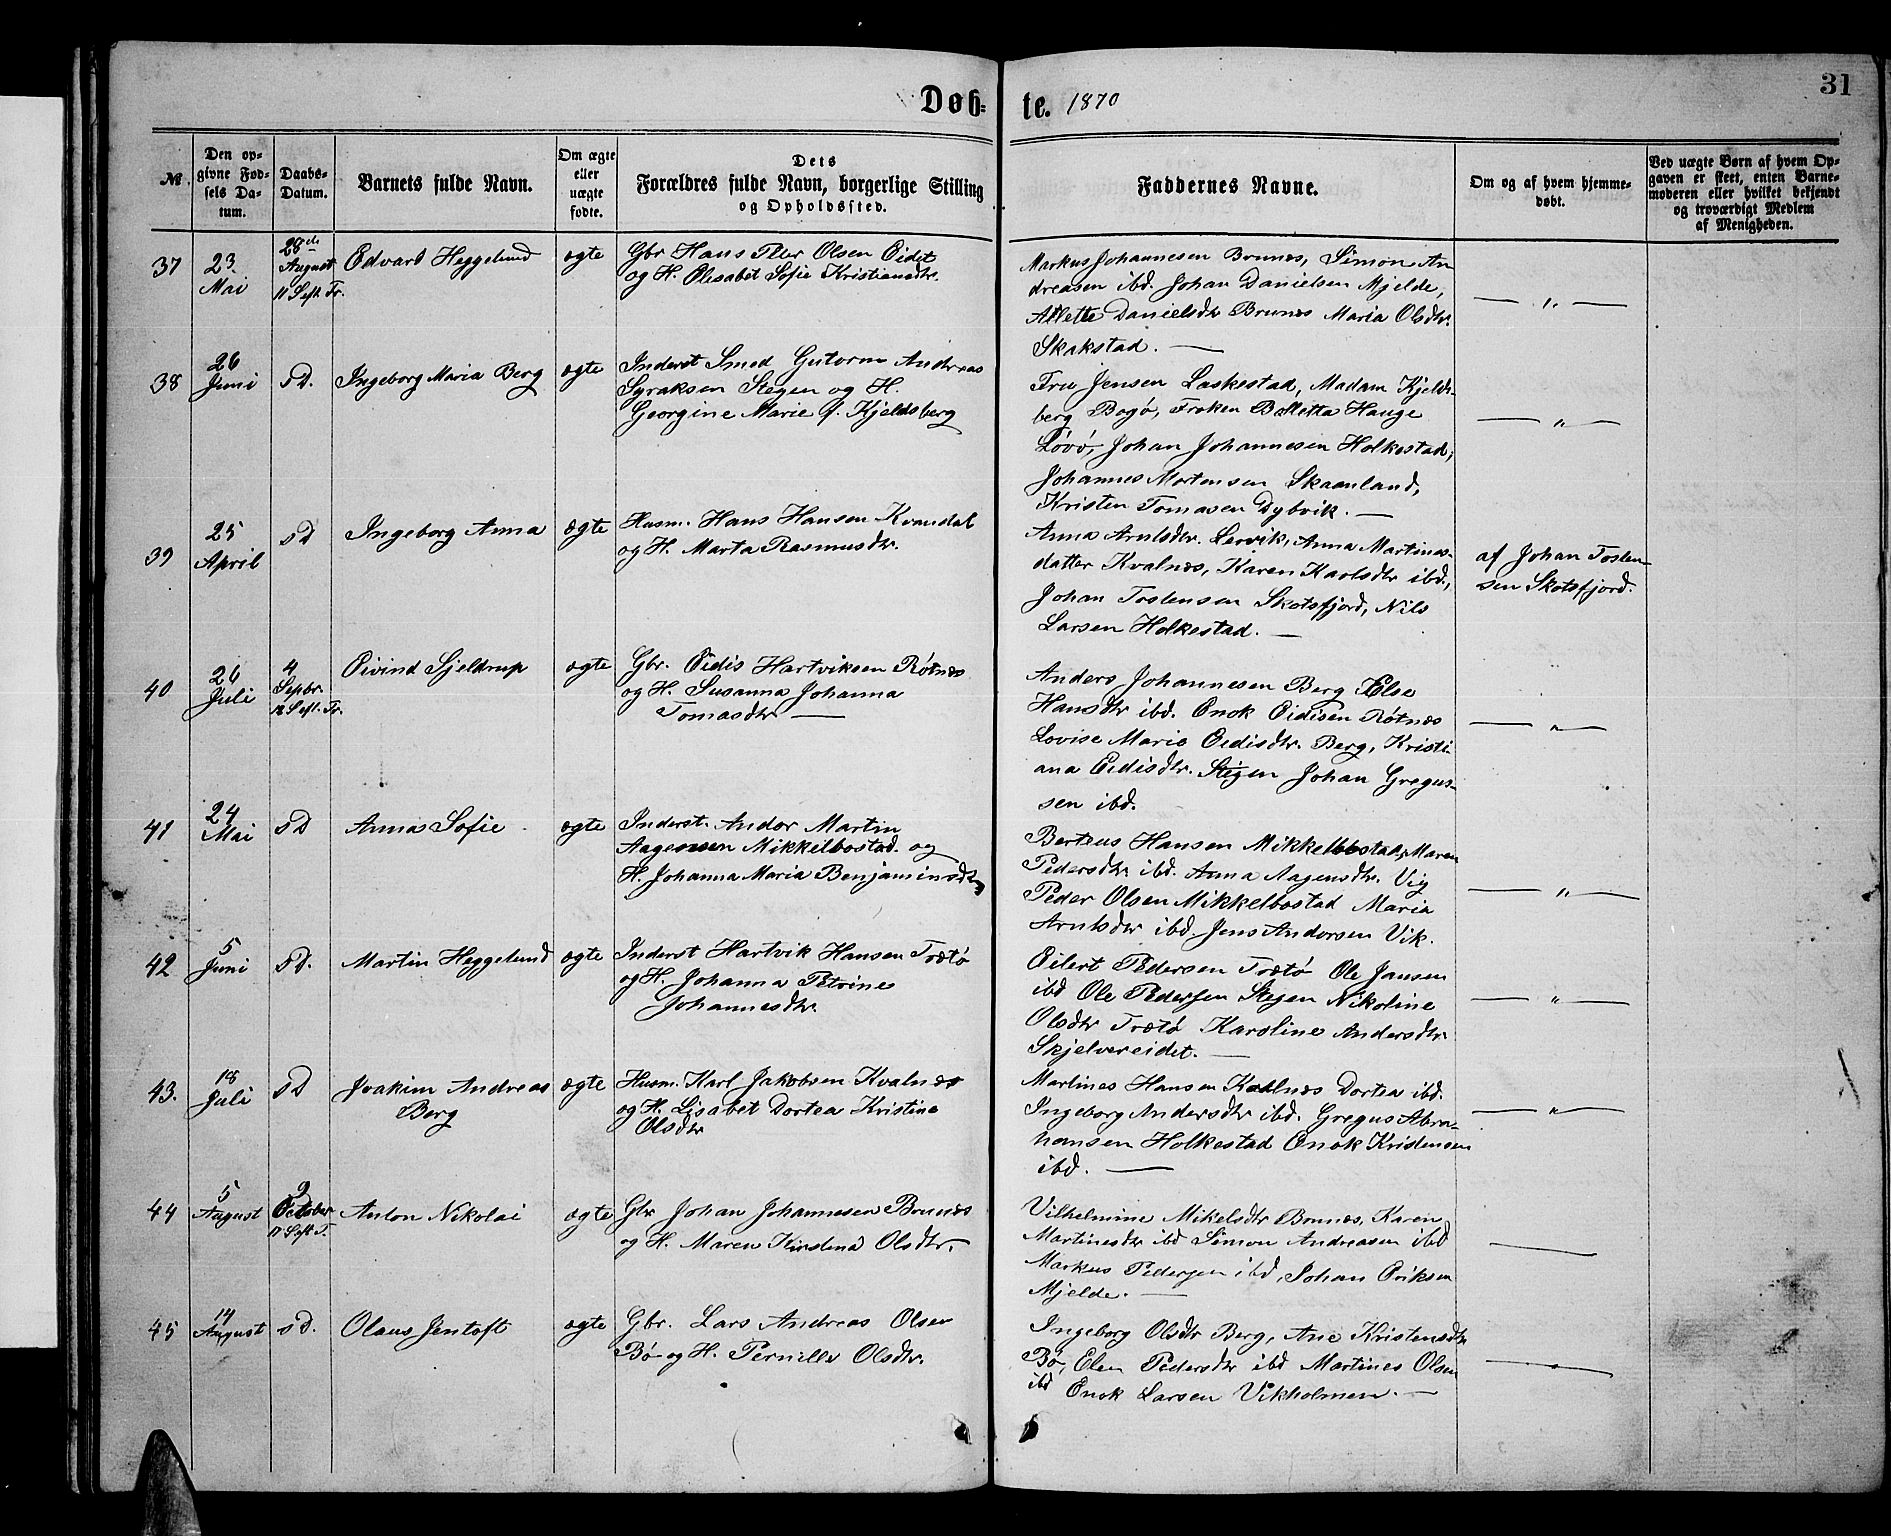 Døb= te. 1870
31
No.
Den op-
givne Fød-
sels Da-
tum.
Daabs-
Datum.
Barnets fulde Navn.
Om ægte
eller
uægte
fødte.
Dets
Forældres fulde Navn, borgerlige Stilling
og Opholdssted.
Faddernes Navne.
Om og af hvem hjemme-
døbt.
Ved uægte Børn af hvem Op-
gaven er skeet, enten Barne-
moderen eller hvilket bekjendt
og troværdigt Medlem
af Menigheden.
37
23.
Mai
28de
August
11 Sept. Tr.
Edvard Heggelund
ægte
Gbr Hans Peter Olsen Eidet
og H. Elisabet Sofie Kristiansdtr.
Markus Johannesen Brunes, Simon An
dreasen ibd. Johan Danielsen Mjelde,
Allette Danielsdtr Brunes Maria Olsdtr.
Skakstad. —
— " —
38
26
Juni
s D.
Ingeborg Maria Berg
ægte
Inderst Smed Gutorm Andreas
Syraksen Stegen og H.
Georgine Marie f. Kjeldsberg
Fru Jensen Laskestad, Madam Kjelds-
berg Bogø, Frøken Bolletta Hauge
Løvø, Johan Johannesen Holkestad,
Johannes Mortensen Skaanland,
Kristen Tomasen Dybvik. —
— " —
39
25
April
s D
Ingeborg Anna
ægte
Husm. Hans Hansen Kvandal
og H. Marta Rasmusdtr.
Anna Arntsdtr. Lervik, Anna Martines-
datter Kvalnes, Karen Karlsdtr ibd.,
Johan Tostensen Skotsfjord, Nils
Larsen Holkestad. —
af Johan Tosten-
sen Skotsfjord.
40
26
Juli
4
Sepbr.
18 Sept. Tr.
Eivind Sjeldrup
ægte
Gbr. Eidis Hartviksen Røtnes
og H. Susanna Johanna
Tomasdtr —
Anders Johannesen Berg Else
Hansdtr ibd. Enok Eidisen Røtnes
Lovise Marie Eidisdtr. Berg, Kristi-
ana Eidisdtr. Stegen Johan Gregus-
sen ibd.
— " —
41
24
Mai
s D
Anna Sofie
ægte
Inderst. Andor Martin
Aagensen Mikkelbostad. og
H. Johanna Maria Benjaminsdtr
Berteus Hansen Mikkelbostad, Maren
Pedersdtr ibd. Anna Aagensdtr. Vig
Peder Olsen Mikkelbostad Maria
Arntsdtr ibd. Jens Andersen Vik.
— " —
42
5
Juni
s D.
Martin Heggelund
ægte
Inderst Hartvik Hansen Trætø
og H. Johanna Petrine
Johannesdtr.
Eilert Pedersen Trætø Ole Jansen
ibd Ole Pedersen Stegen Nikoline
Olsdtr Trætø Karoline Andersdtr
Skjelvereidet. —
— " —
43.
18
Juli
s D
Joakim Andreas
Berg
ægte
Husm. Karl Jakobsen Kvalnes
og H. Lisabet Dortea Kristine
Olsdtr
Martines Hansen Kvalnes Dortea ibd.
Ingeborg Andersdtr ibd. Gregus Abra-
hansen Holkestad Enok Kristensen
ibd. —
— " —
44
5
August
2
October
11 Sept T.
Anton Nikolai
ægte
Gbr Johan Johannesen Brunes
og H. Maren Kirstina Olsdtr.
Vilhelmine Mikelsdtr Brunes, Karen
Martinesdtr ibd Simon Andreasen ibd
Markus Pedersen ibd, Johan Eriksen
Mjelde. —
—
45
14
August
s D.
Olaus Jentoft
ægte
Gbr. Lars Andreas Olsen
Bø og H. Pernille Olsdtr.
Ingeborg Olsdtr Berg, Ane Kristensdtr
Bø, Elen Pedersdtr ibd Martines Olsen
ibd Enok Larsen Vikholmen. —
— " —